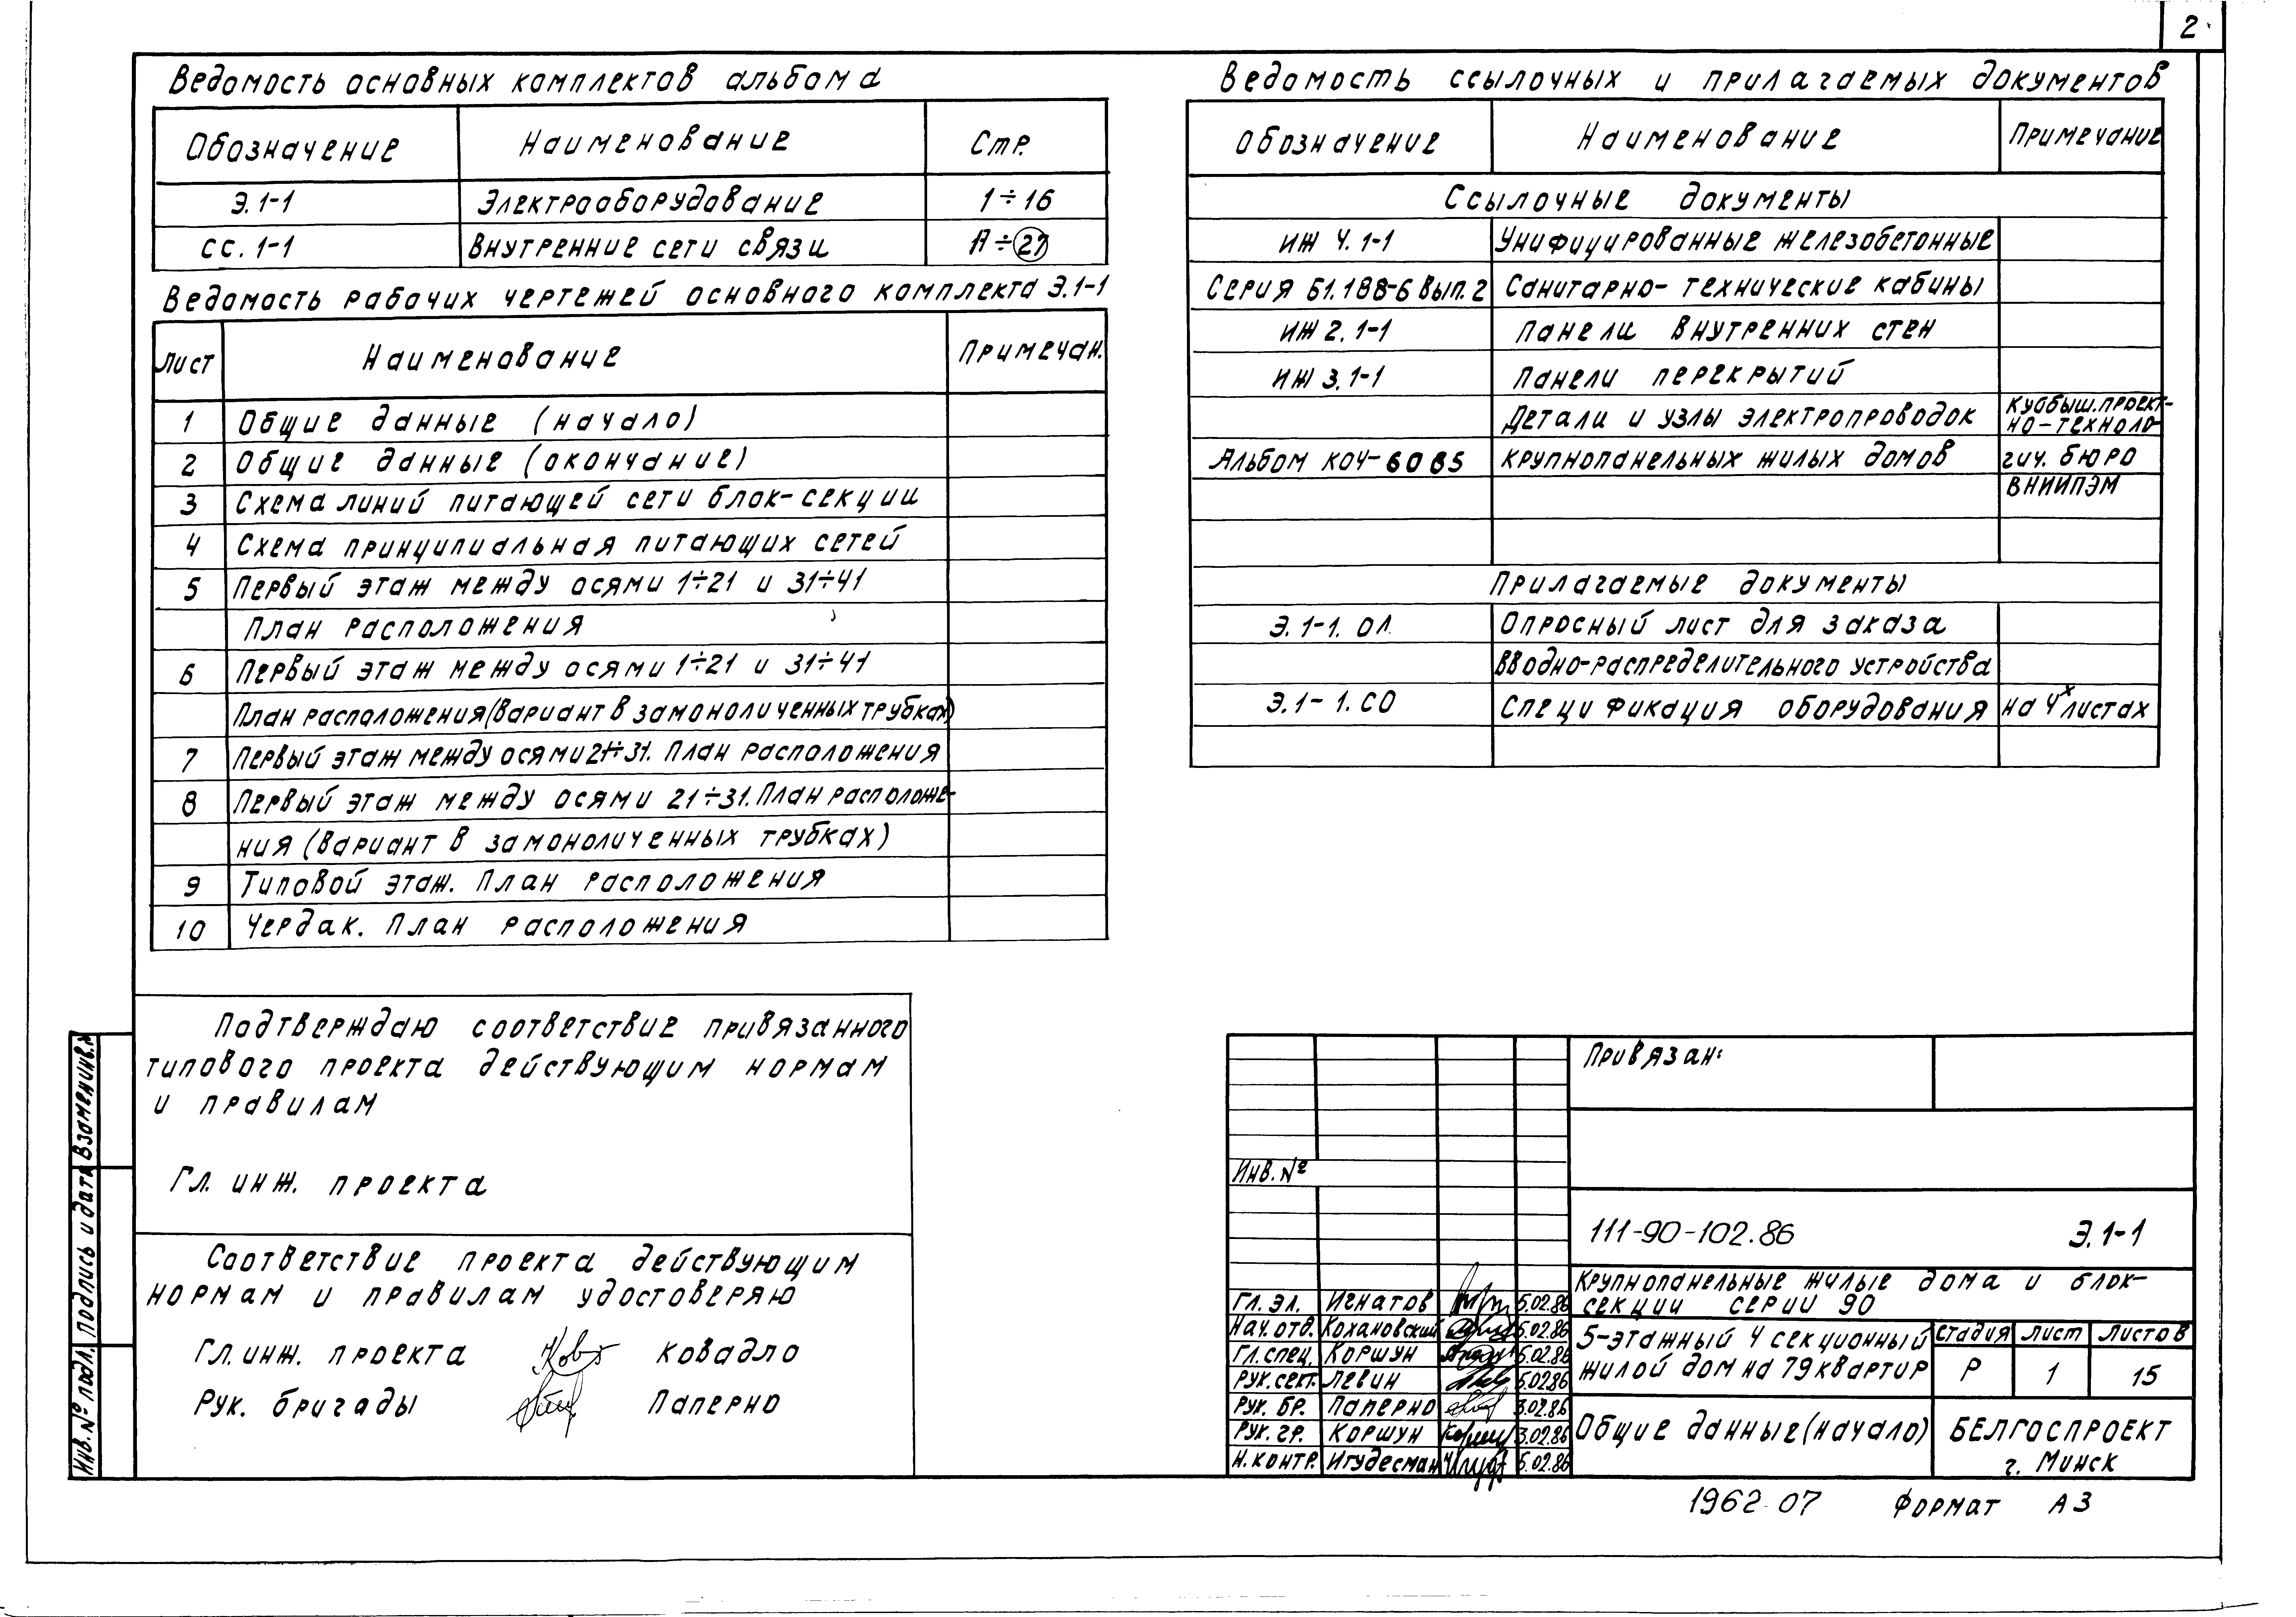 2
Ведомость основных комплектов альбома
Обозначение Наименование Стр.
Э.1-1 Электрооборудование 1÷16
СС.1-1 Внутренние сети связи 17÷27
Ведомость рабочих чертежей основного комплекта Э.1-1
Лист Наименование Примечан.
1 Общие данные (начало)
2 Общие данные (окончание)
3 Схема линий питающей сети блок-секции
4 Схема принципиальная питающих сетей
5 Первый этаж между осями 1÷21 и 31÷41
План расположения
6 Первый этаж между осями 1÷21 и 31÷41
План расположения (вариант в замоноличенных трубках)
7 Первый этаж между осями 21÷31. План расположения
8 Первый этаж между осями 21÷31. План расположе-
ния (вариант в замоноличенных трубках)
9 Типовой этаж. План расположения
10 Чердак. План расположения
Ведомость ссылочных и прилагаемых документов
Обозначение Наименование Примечание
Ссылочные документы
ИЖ 4.1-1 Унифицированные железобетонные
Серия Б1.188-6 Вып.2 Санитарно-технические кабины
ИЖ 2.1-1 Панели внутренних стен
ИЖ 3.1-1 Панели перекрытий
Детали и узлы электропроводок Куйбыш.проект-
но-техноло-
Альбом КОЧ-6085 крупнопанельных жилых домов гич. бюро
ВНИИПЭМ
Прилагаемые документы
Э.1-1.ОЛ Опросный лист для заказа
вводно-распределительного устройства
Э.1-1.СО Спецификация оборудования на 4х листах
Подтверждаю соответствие привязанного
типового проекта действующим нормам
и правилам
Гл. инж. проекта
Соответствие проекта действующим
нормам и правилам удостоверяю
Гл. инж. проекта Ковадло
Рук. бригады Паперно
Инв.№ подл. Подпись и дата Взамен инв.№
Привязан:
Инв.№
111-90-102.86 Э.1-1
Крупнопанельные жилые дома и блок-
секции серии 90
Гл. эл. Игнатов 5.02.86
Нач. отд. Кохановский 5.02.86
Гл. спец. Коршун 5.02.86
Рук. сект. Левин 5.02.86
Рук. бр. Паперно 3.02.86
Рук. гр. Коршун 3.02.86
Н. контр. Игудесман 5.02.86
5-этажный 4 секционный
жилой дом на 79 квартир
Стадия Лист Листов
Р 1 15
Общие данные (начало)
БЕЛГОСПРОЕКТ
г. Минск
1962-07 Формат А3